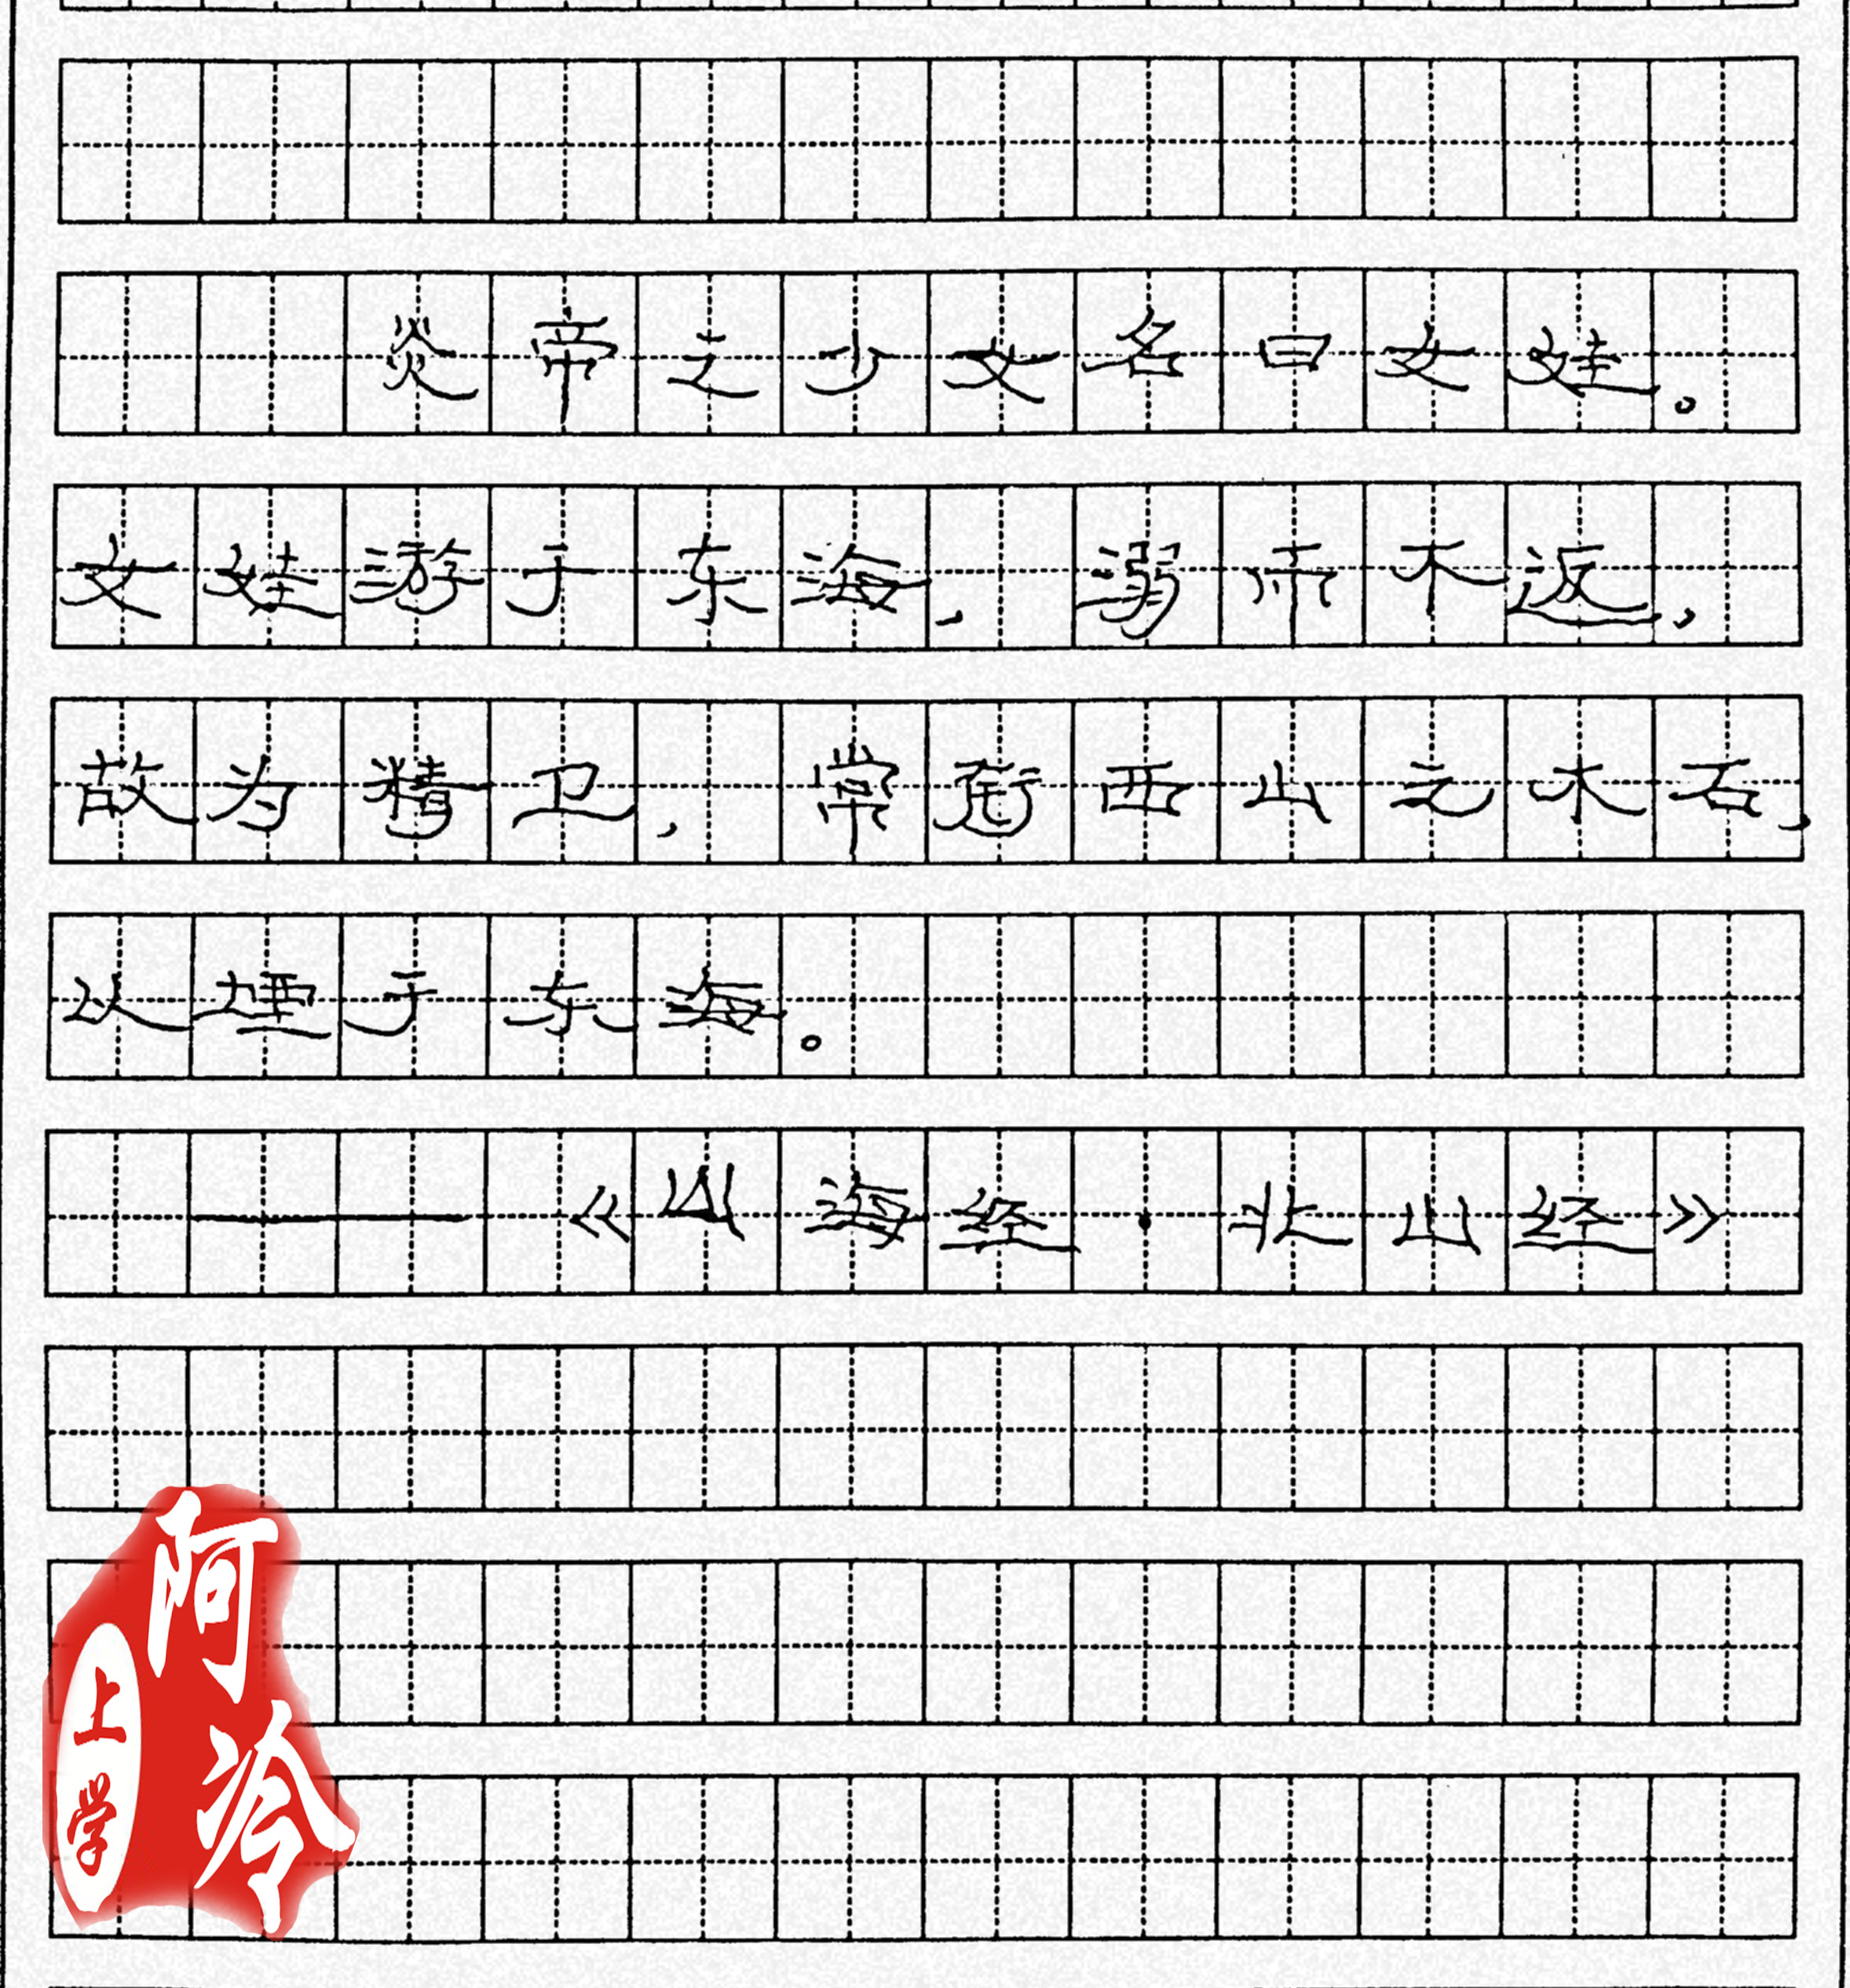 炎帝之少女名曰女娃。
女娃游于东海，溺而不返，
故为精卫，常衔西山之木石，
以堙于东海。
——《山海经·北山经》
阿冷
上学